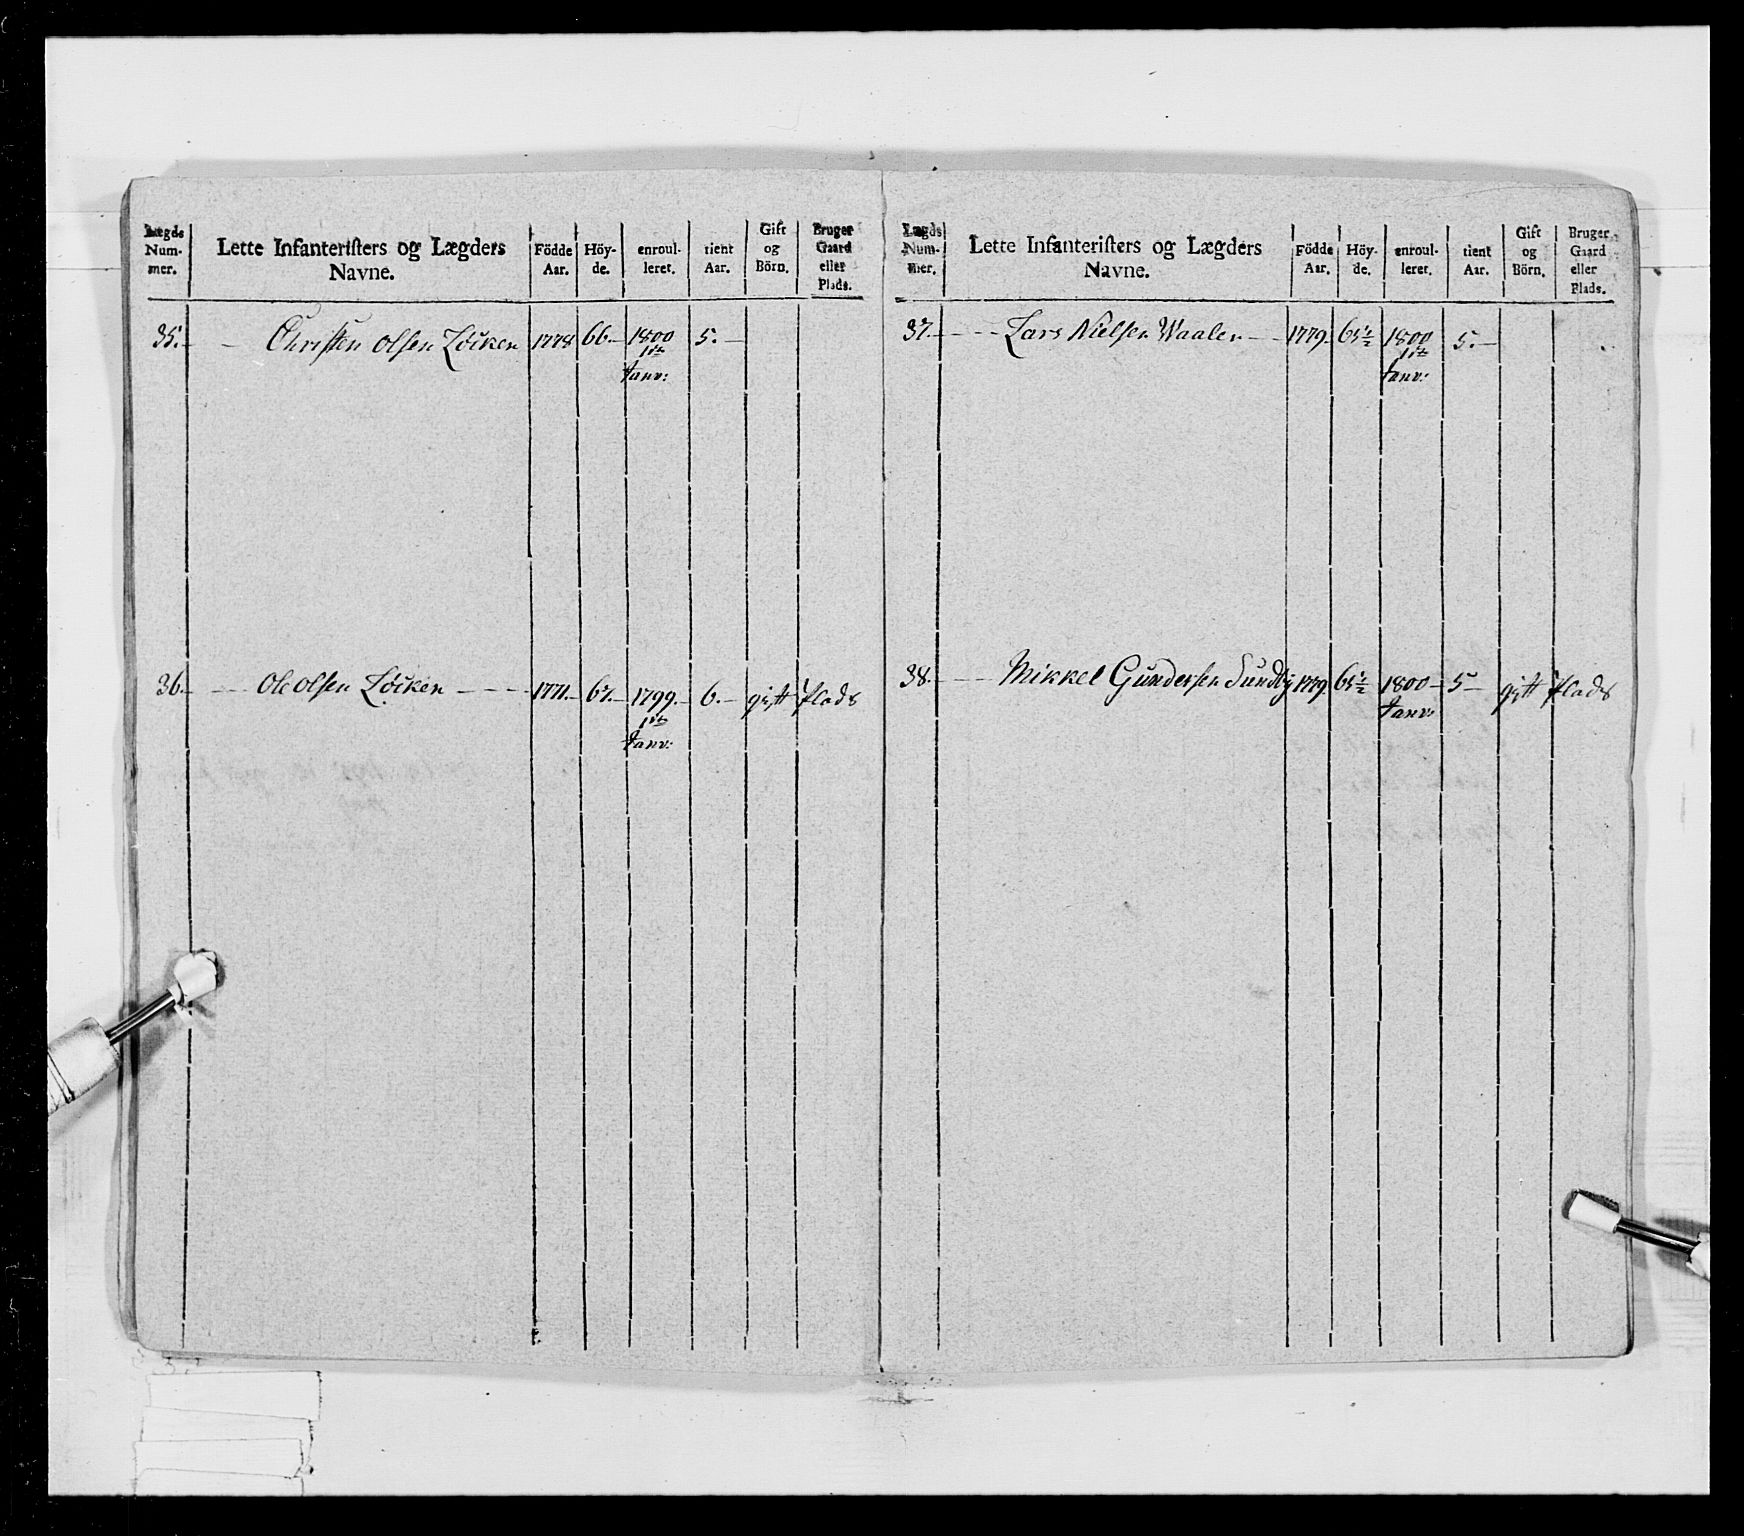 Lægds Num- mer. Lette Infanteristers og Lægders Navne. Födde Aar. Höy- de. enroul- leret. tient Aar. Gift og Börn. Bruger Gaard eller Plads.
35. – – Christen Olsen Löcken 1778 66.– 1800 5. –
1ste
Janv:
36. – – – Ole Olsen Löcken – – – – 1771. 67. – 1799. – 6. – gift plads
1ste
Janv:
Lægds Num- mer. Lette Infanteristers og Lægders Navne. Födde Aar. Höy- de. enroul- leret. tient Aar. Gift og Börn. Bruger Gaard eller Plads.
37. – – – Lars Nielsen Waaler – – 1779. 65½ 1800 5. –
1ste
Janv:
38. – – – Mikkel Gundersen Sundby 1779. 65½ 1800 – 5 – gift plads
Janv: